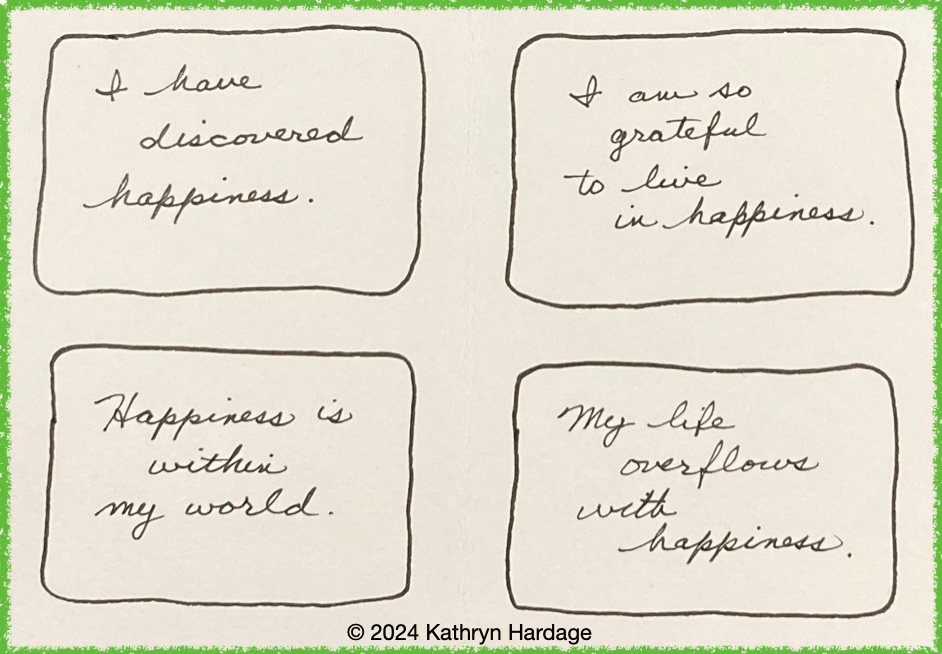 I have
discovered
happiness.
I am so
grateful
to live
in happiness.
Happiness is
within
my world.
My life
overflows
with
happiness.
© 2024 Kathryn Hardage